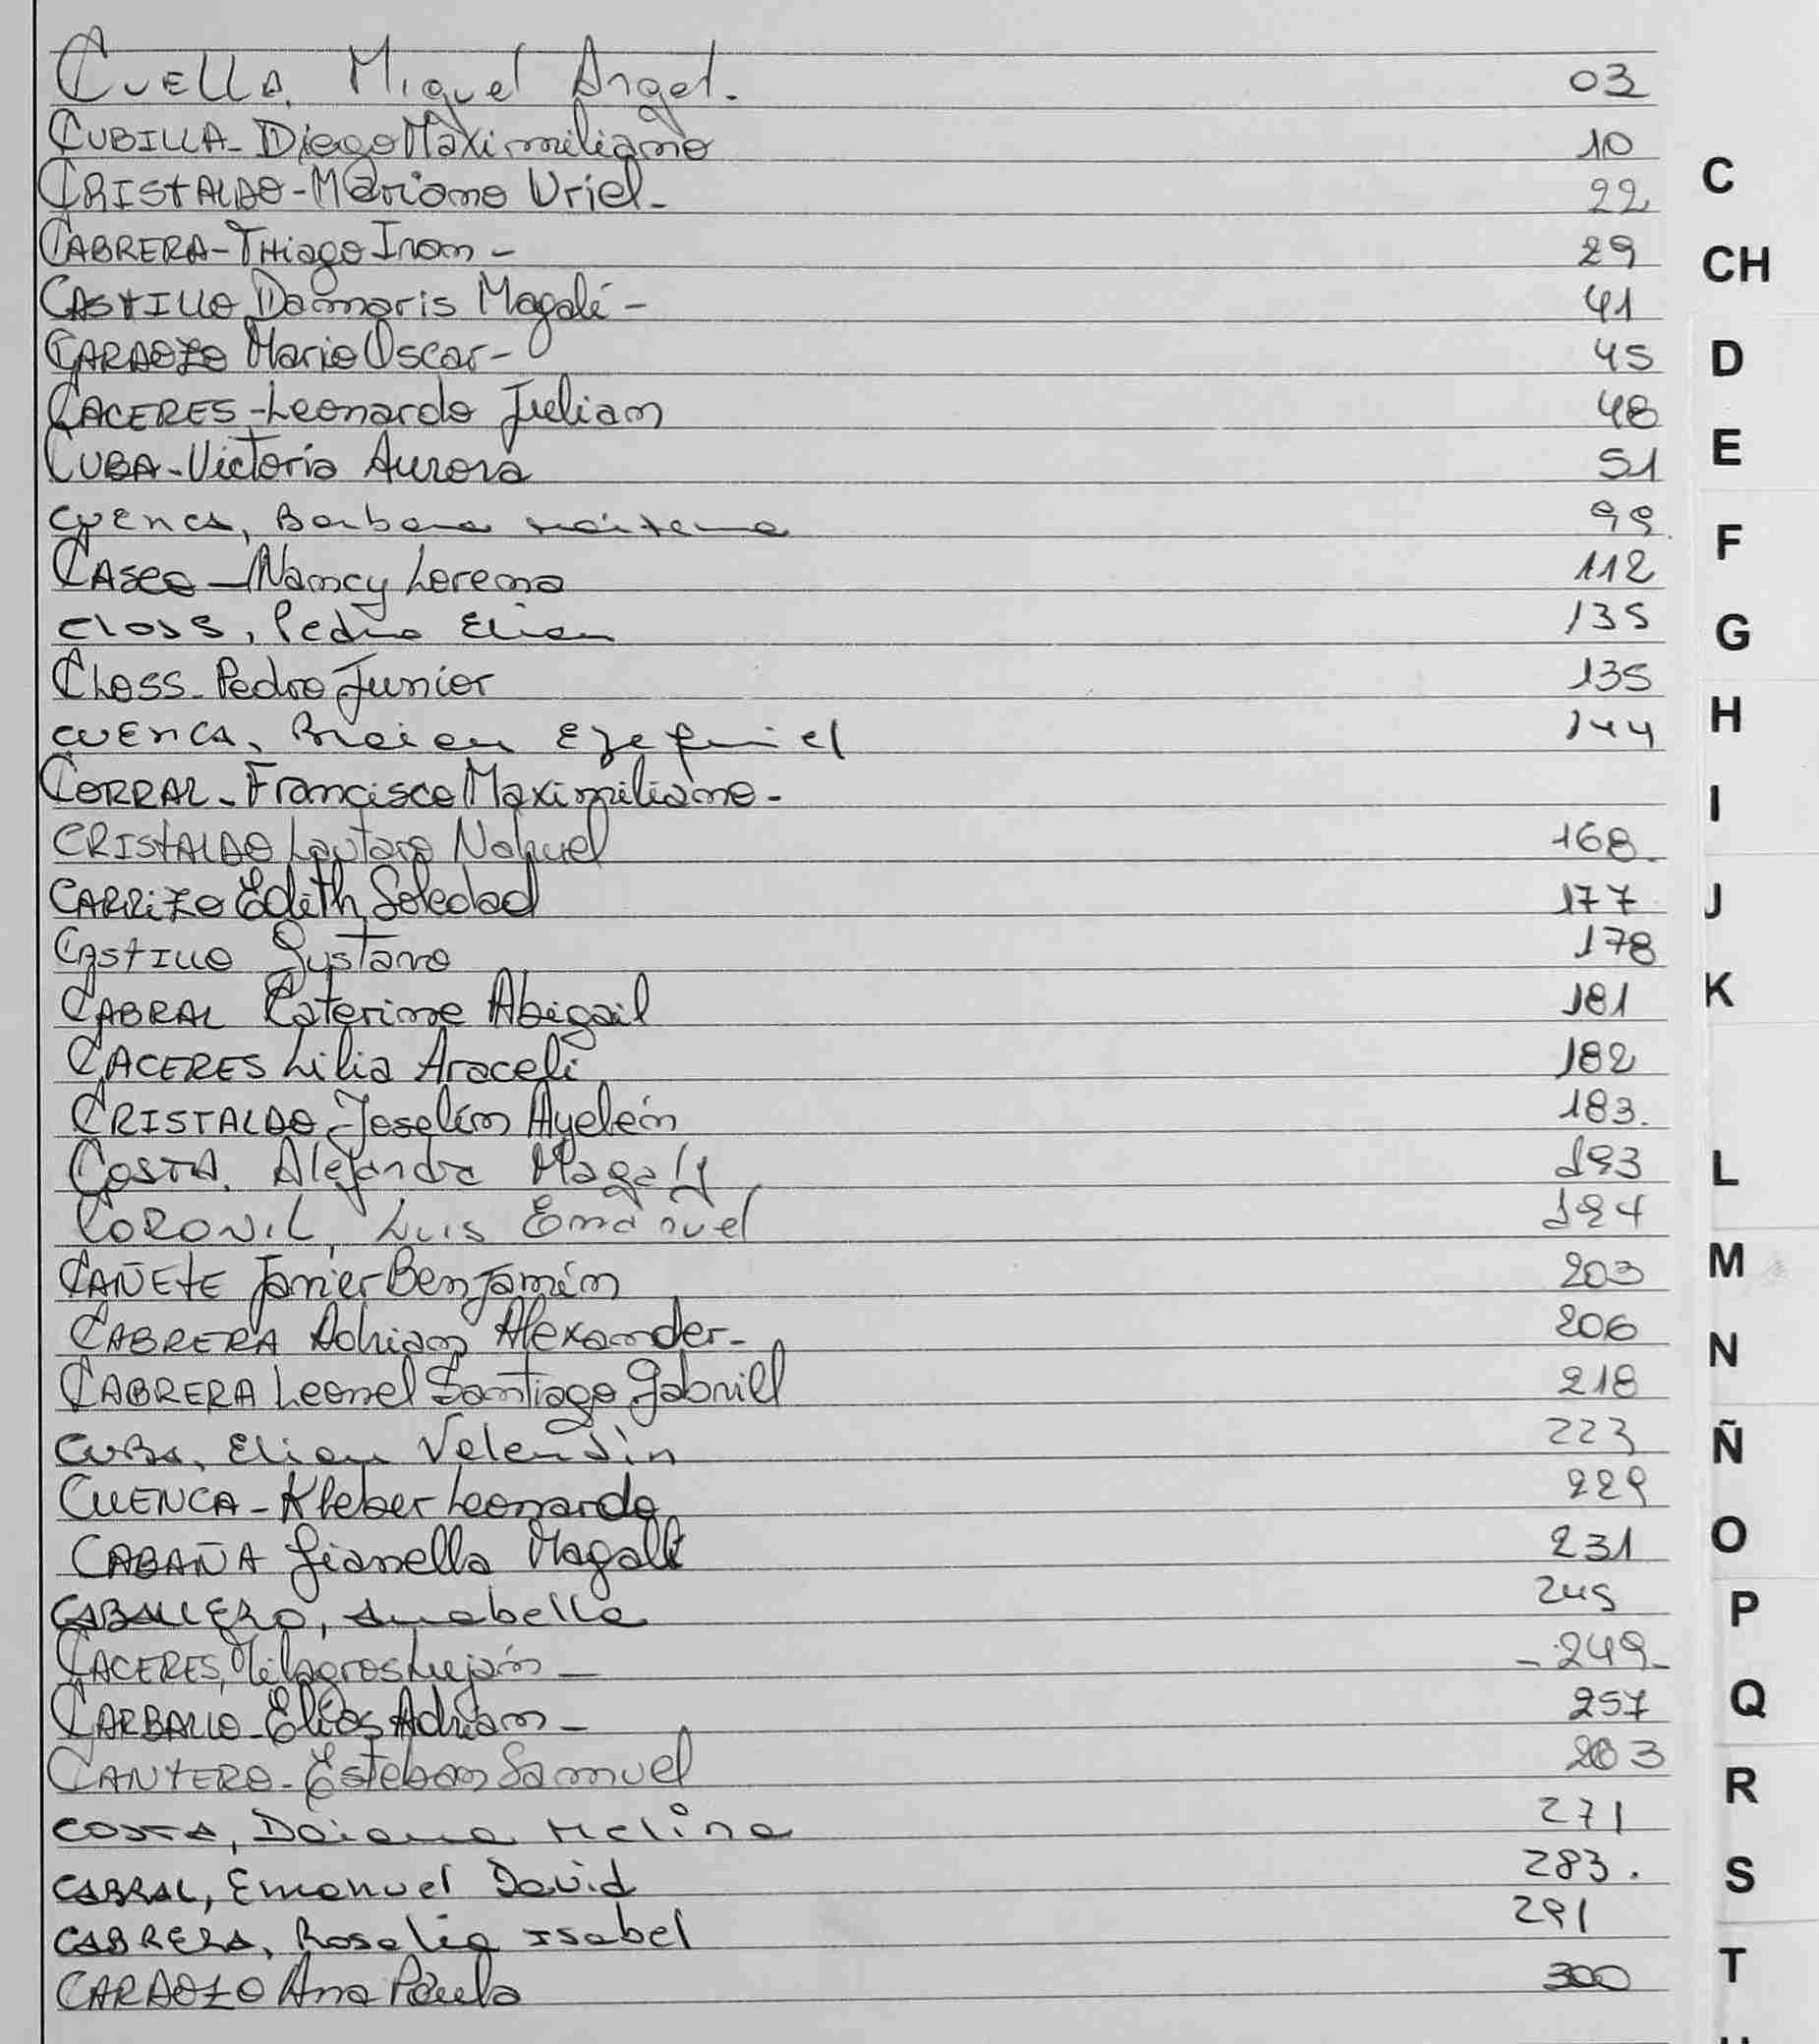 Cuella, Miguel Angel. 03
CUBILLA - Diego Maximiliano 10
CRISTALDO - Mariano Uriel - 22
CABRERA - Thiago Ivan - 29
CASTILLO Damaris Magalí - 41
CARDOZO Mario Oscar - 45
CACERES - Leonardo Julian 48
CUBA - Victoria Aurora 51
CUENCA, Barbara 99
CASCO - Nancy Lorena 112
CLOSS, Pedro Elian 135
CLOSS - Pedro Junior 135
CUENCA, Braian Ezequiel 144
CORRAL - Francisco Maximiliano -
CRISTALDO Lautaro Nahuel 168
CARRIZO Edith Soledad 177
CASTILLO Gustavo 178
CABRAL Caterine Abigail 181
CACERES Lilia Araceli 182
CRISTALDO Joselín Ayelén 183.
COSTA, Alejandra Magaly 193
CORONIL, Luis Emanuel 194
CAÑETE Javier Benjamín 203
CABRERA Adrian Alexander - 206
CABRERA Leonel Santiago Gabriel 218
CUBA, Elian Valentin 223
CUENCA - Kleber Leonardo 229
CABAÑA Gianella Magalí 231
CABALLERO, Anabella 245
CACERES, Milagros Luján - - 249 -
CARBALLO - Elías Adrian - 257
CANTERO - Esteban Samuel 263
COSTA, Daiana Melina 271
CABRAL, Emanuel David 283.
CABRERA, Rosalia Isabel 291
CARDOZO Ana Paula 300
C
CH
D
E
F
G
H
I
J
K
L
M
N
Ñ
O
P
Q
R
S
T